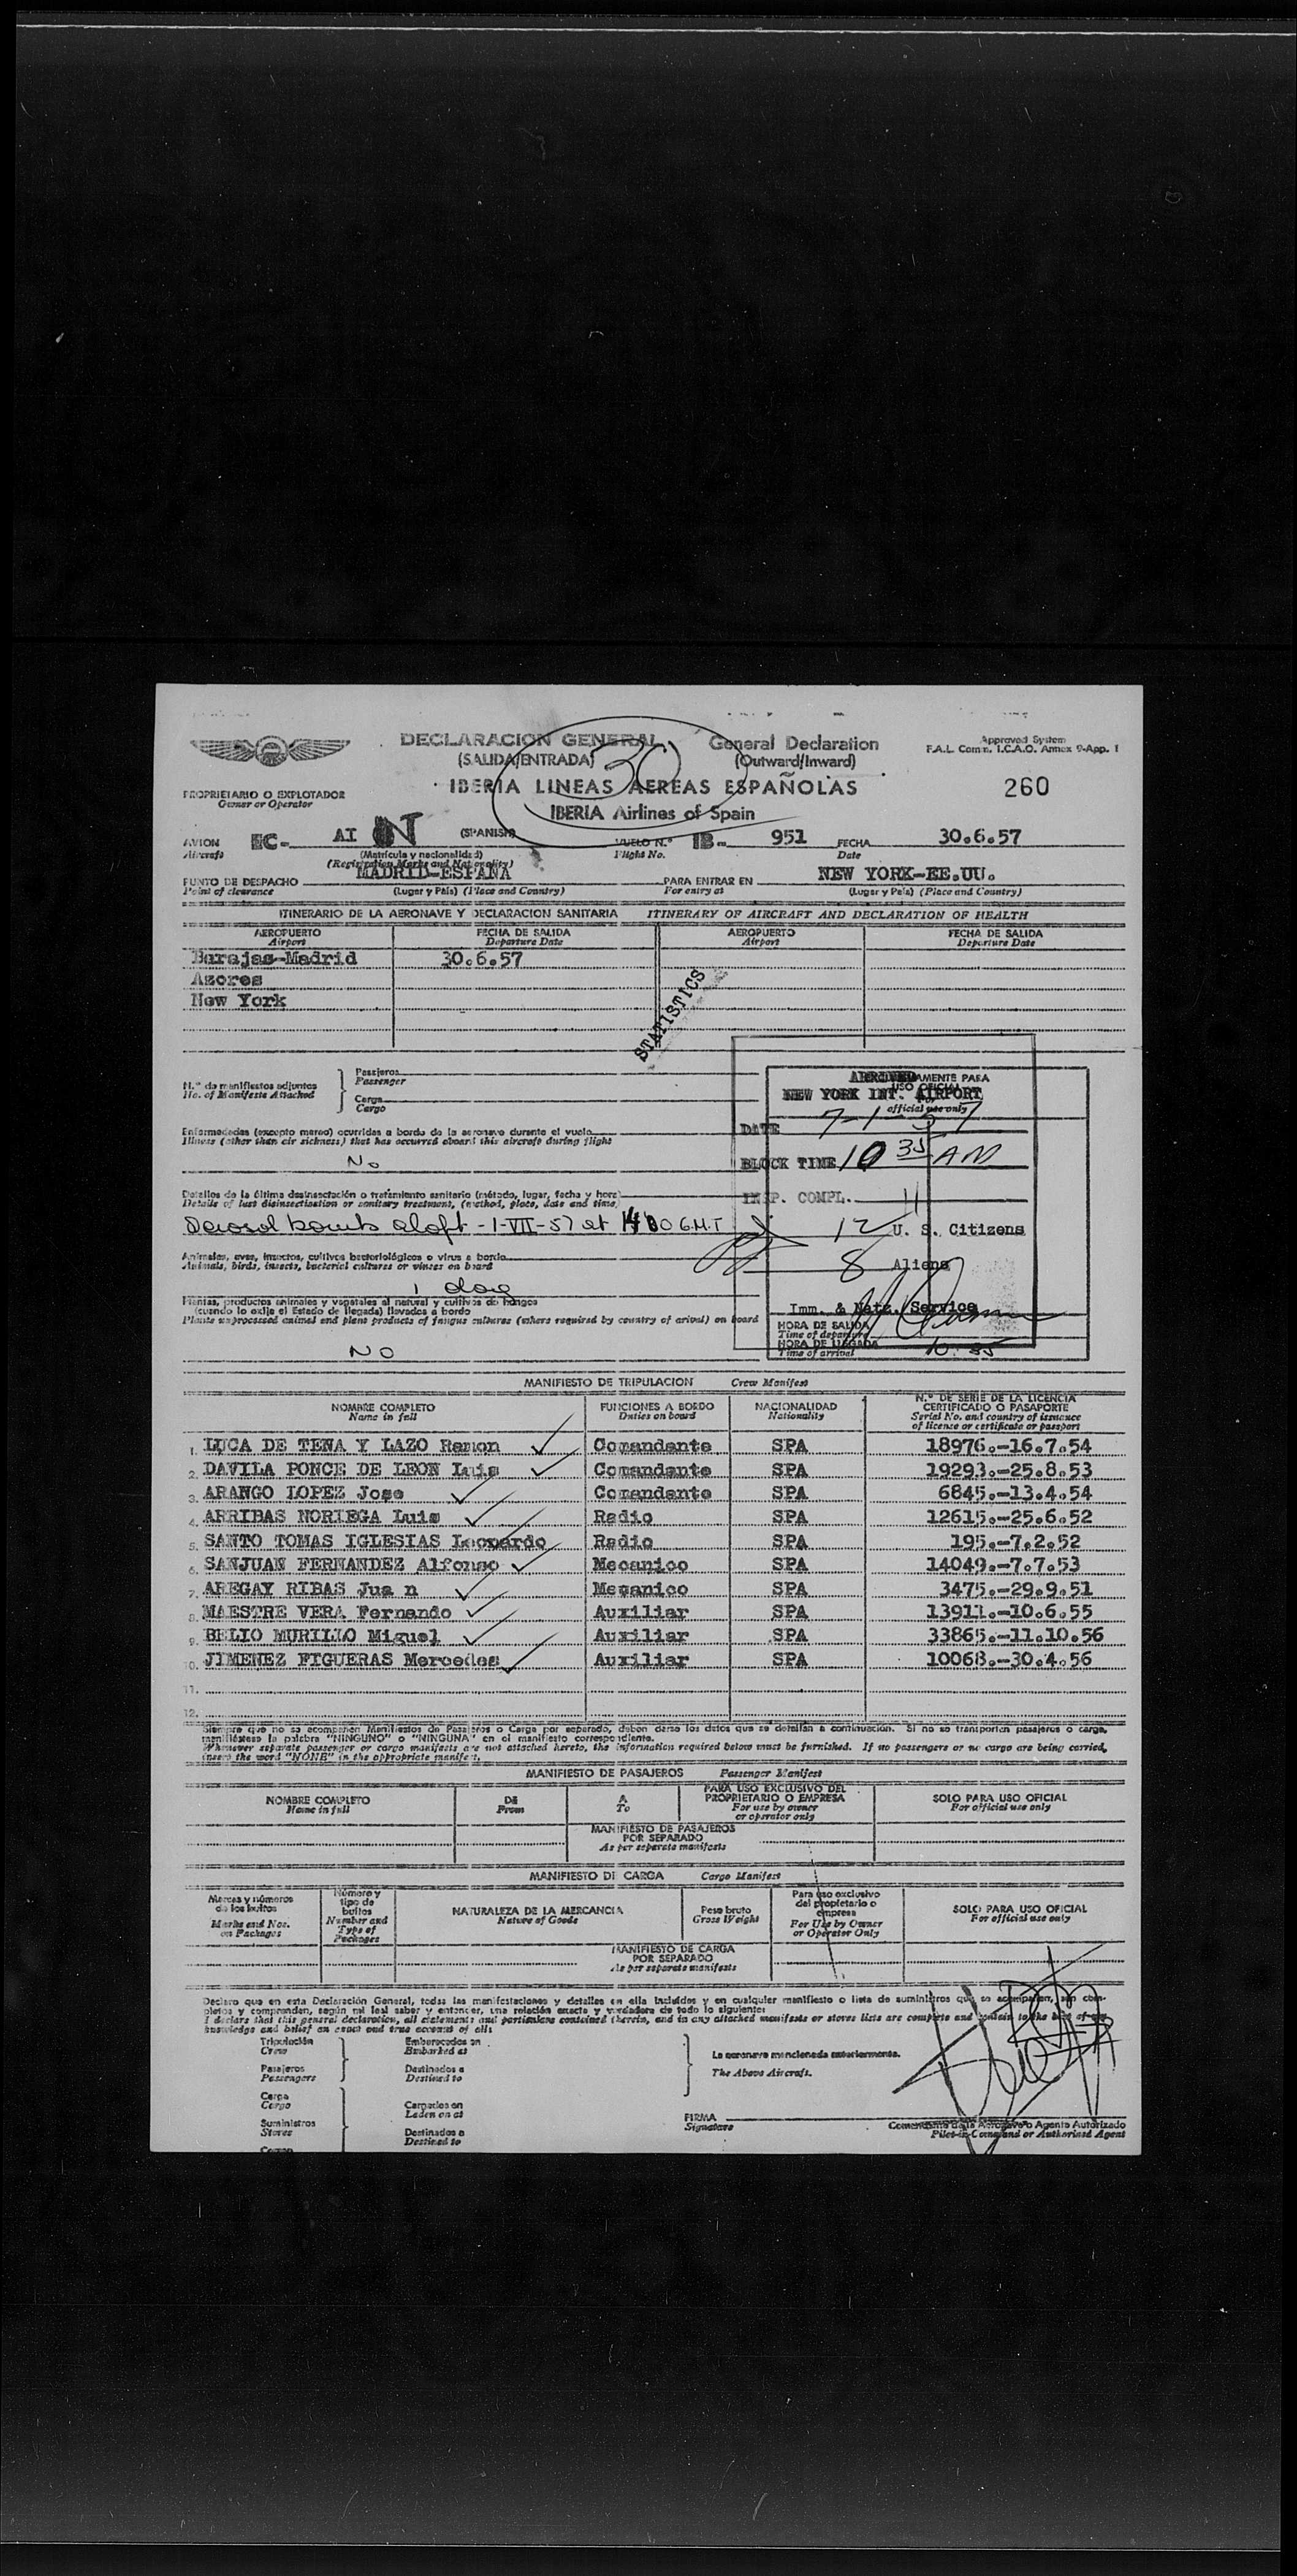 DECLARACION GENERAL General Declaration
(SALIDA/ENTRADA) (Outward/Inward)
Approved System
F.A.L. Comn. I.C.A.O. Annex 9-App. 1
30
IBERIA LINEAS AEREAS ESPAÑOLAS
260
PROPRIETARIO O EXPLOTADOR
Owner or Operator
IBERIA Airlines of Spain
AVION EC- AI N (SPANISH) VUELO N.° IB- 951 FECHA 30.6.57
Aircraft (Matrícula y nacionalidad) Flight No. Date
(Registration Marks and Nationality)
PUNTO DE DESPACHO MADRID-ESPAÑA PARA ENTRAR EN NEW YORK-EE.UU.
Point of clearance (Lugar y País) (Place and Country) For entry at (Lugar y País) (Place and Country)
ITINERARIO DE LA AERONAVE Y DECLARACION SANITARIA ITINERARY OF AIRCRAFT AND DECLARATION OF HEALTH
AEROPUERTO FECHA DE SALIDA AEROPUERTO FECHA DE SALIDA
Airport Departure Date Airport Departure Date
Barajas-Madrid 30.6.57
Azores
New York
STATISTICS
N.° de manifiestos adjuntos
No. of Manifests Attached
Pasajeros
Passenger
Carga
Cargo
ARRIVED
NEW YORK INT. AIRPORT
official use only
DATE 7-1-57
BLOCK TIME 10 35 AM
INSP. COMPL. 11
12 U. S. Citizens
8 Aliens
Imm. & Natz. Service
HORA DE SALIDA
Time of departure
HORA DE LLEGADA
Time of arrival 10:35
Enfermedades (excepto mareo) ocurridas a bordo de la aeronave durante el vuelo
Illness (other than air sickness) that has occurred aboard this aircraft during flight
No
Detalles de la última desinsectación o tratamiento sanitario (método, lugar, fecha y hora)
Details of last disinsectisation or sanitary treatment, (method, place, date and time)
Aerosol bomb aloft - 1-VII-57 at G.M.T
Animales, aves, insectos, cultivos bacteriológicos o virus a bordo
Animals, birds, insects, bacterial cultures or viruses on board
1 dog
Plantas, productos animales y vegetales al natural y cultivos de hongos
(cuando lo exije el Estado de llegada) llevados a bordo
Plants unprocessed animal and plant products of fungus cultures (where required by country of arival) on board
NO
MANIFIESTO DE TRIPULACION Crew Manifest
NOMBRE COMPLETO FUNCIONES A BORDO NACIONALIDAD N.° DE SERIE DE LA LICENCIA CERTIFICADO O PASAPORTE
Name in full Duties on board Nationality Serial No. and country of issuance of license or certificate or passport
1. LUCA DE TENA Y LAZO Ramon Comandante SPA 18976.-16.7.54
2. DAVILA PONCE DE LEON Luis Comandante SPA 19293.-25.8.53
3. ARANGO LOPEZ Jose Comandante SPA 6845.-13.4.54
4. ARRIBAS NORIEGA Luis Radio SPA 12615.-25.6.52
5. SANTO TOMAS IGLESIAS Leonardo Radio SPA 195.-7.2.52
6. SANJUAN FERNANDEZ Alfonso Mecanico SPA 14049.-7.7.53
7. AREGAY RIBAS Jua n Mecanico SPA 3475.-29.9.51
8. MAESTRE VERA Fernando Auxiliar SPA 13911.-10.6.55
9. BELIO MURILLO Miguel Auxiliar SPA 33865.-11.10.56
10. JIMENEZ FIGUERAS Mercedes Auxiliar SPA 10068.-30.4.56
11.
12.
Siempre que no se acompañen Manifiestos de Pasajeros o Carga por separado, deben darse los datos que se detallan a continuación. Si no se transportan pasajeros o carga,
manifiéstese la palabra "NINGUNO" o "NINGUNA" en el manifiesto correspondiente.
Whenever separate passenger or cargo manifests are not attached hereto, the information required below must be furnished. If no passengers or no cargo are being carried,
insert the word "NONE" in the appropriate manifest.
MANIFIESTO DE PASAJEROS Passenger Manifest
NOMBRE COMPLETO DE A PARA USO EXCLUSIVO DEL PROPRIETARIO O EMPRESA SOLO PARA USO OFICIAL
Name in full From To For use by owner or operator only For official use only
MANIFIESTO DE PASAJEROS
POR SEPARADO
As per separate manifests
MANIFIESTO DE CARGA Cargo Manifest
Marcas y números de los bultos Número y tipo de bultos NATURALEZA DE LA MERCANCIA Peso bruto Para uso exclusivo del propietario o empresa SOLO PARA USO OFICIAL
Marks and Nos. on Packages Number and Type of Packages Nature of Goods Gross Weight For Use by Owner or Operator Only For official use only
MANIFIESTO DE CARGA
POR SEPARADO
As per separate manifests
Declaro que en esta Declaración General, todas las manifestaciones y detalles en ella incluídos y en cualquier manifiesto o lista de suministros que se acompañen, son com-
pletos y comprenden, según mi leal saber y entender, una relación exacta y verdadera de todo lo siguiente:
I declare that this general declaration, all statements and particulars contained therein, and in any attached manifests or stores lists are complete and contain to the best of my
knowledge and belief an exact and true account of all:
Tripulación Embarcados en
Crew Embarked at
Pasajeros Destinados a
Passengers Destined to
La aeronave mencionada anteriormente.
The Above Aircraft.
Carga Cargados en
Cargo Laden on at
Suministros Destinados a
Stores Destined to
FIRMA
Signature
Comandante de la Aeronave o Agente Autorizado
Pilot-in-Command or Authorised Agent